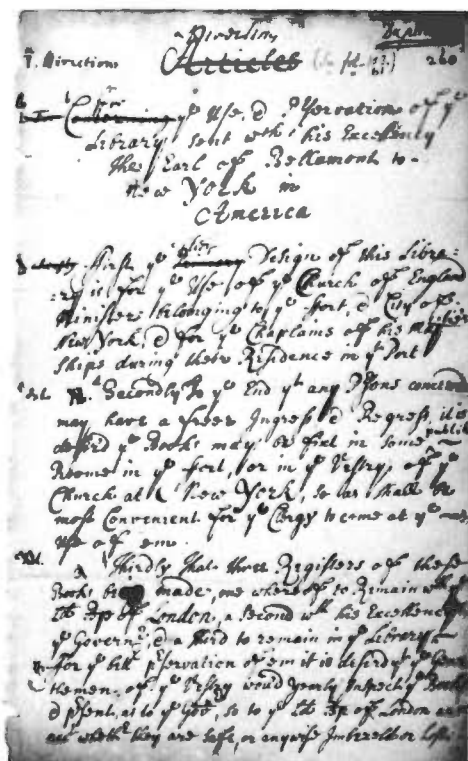 Directions Articles 260
ye Use, & Pservation of ye
Library sent wth his Excellency
the Earl of Bellamont to
New York in
America
First ye Design of this Libra:
:ry is for ye Use of ye Church of England
Ministers belonging to ye Fort, & City of
New York, & for ye Chaplains of his Majesties
Ships during their Residence in yt Port
Secondly To ye End yt any Psons concernd
may have a freer Ingress & Regress, it is
desird ye Books may be fixt in some publick
Roome in ye Fort, or in ye Vestry of ye
Church at New York, so as shall be
most Convenient for ye Clergy to come at ye
Use of em.
Thirdly That three Registers of these
Books be made, one whereof to Remain wth
Ld Bp of London, a Second wth his Excellence
ye Governr, & a third to remain in ye Library
for ye bettr pservation of em it is desird yt ye Gen
tlemen of ye Vestry would yearly Inspect ye Books
& psent, as to ye Govr, so to ye Ld Bp of London an
act whethr they are safe, or anywise Imbezeld or Lost